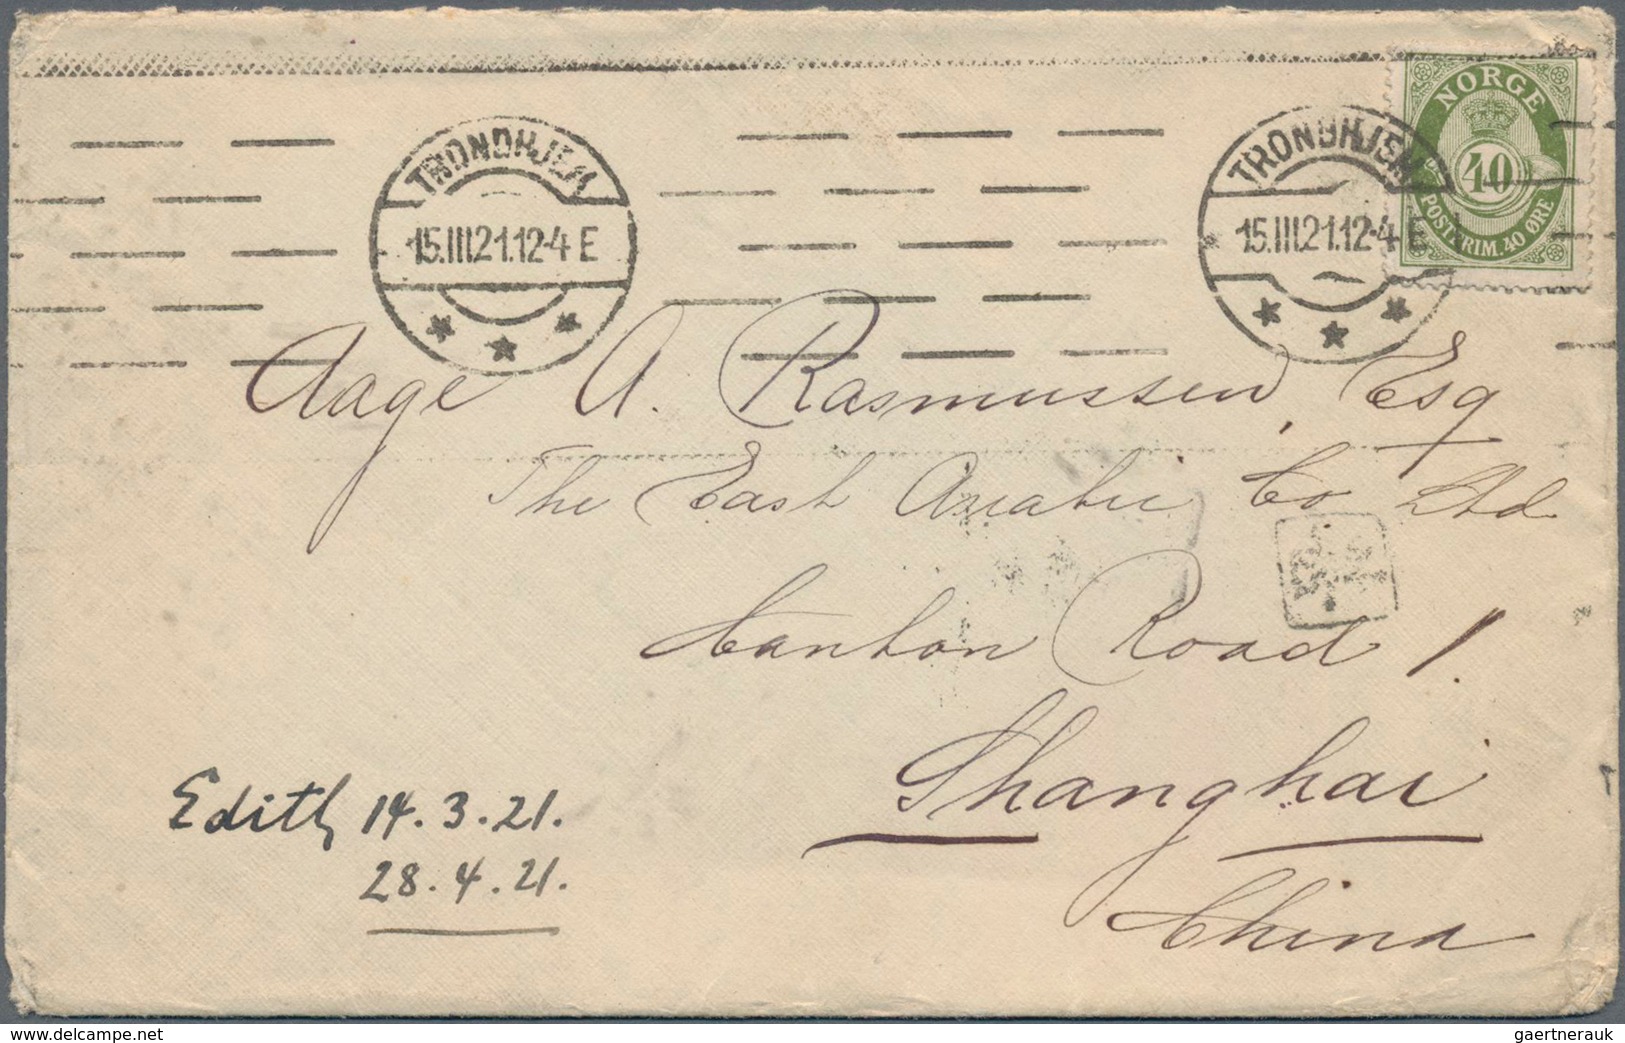 NORGE
40
POSTFRIM. 40 ØRE
TRONDHJEM
15.III.21.12-4 E
TRONDHJEM
15.III.21.12-4 E
Aage A. Rasmussen, Esq
The East Asiatic Co Ltd
Canton Road 1.
Shanghai
China
Edith 14.3.21.
28.4.21.
delcampe.net
gaertnerauk